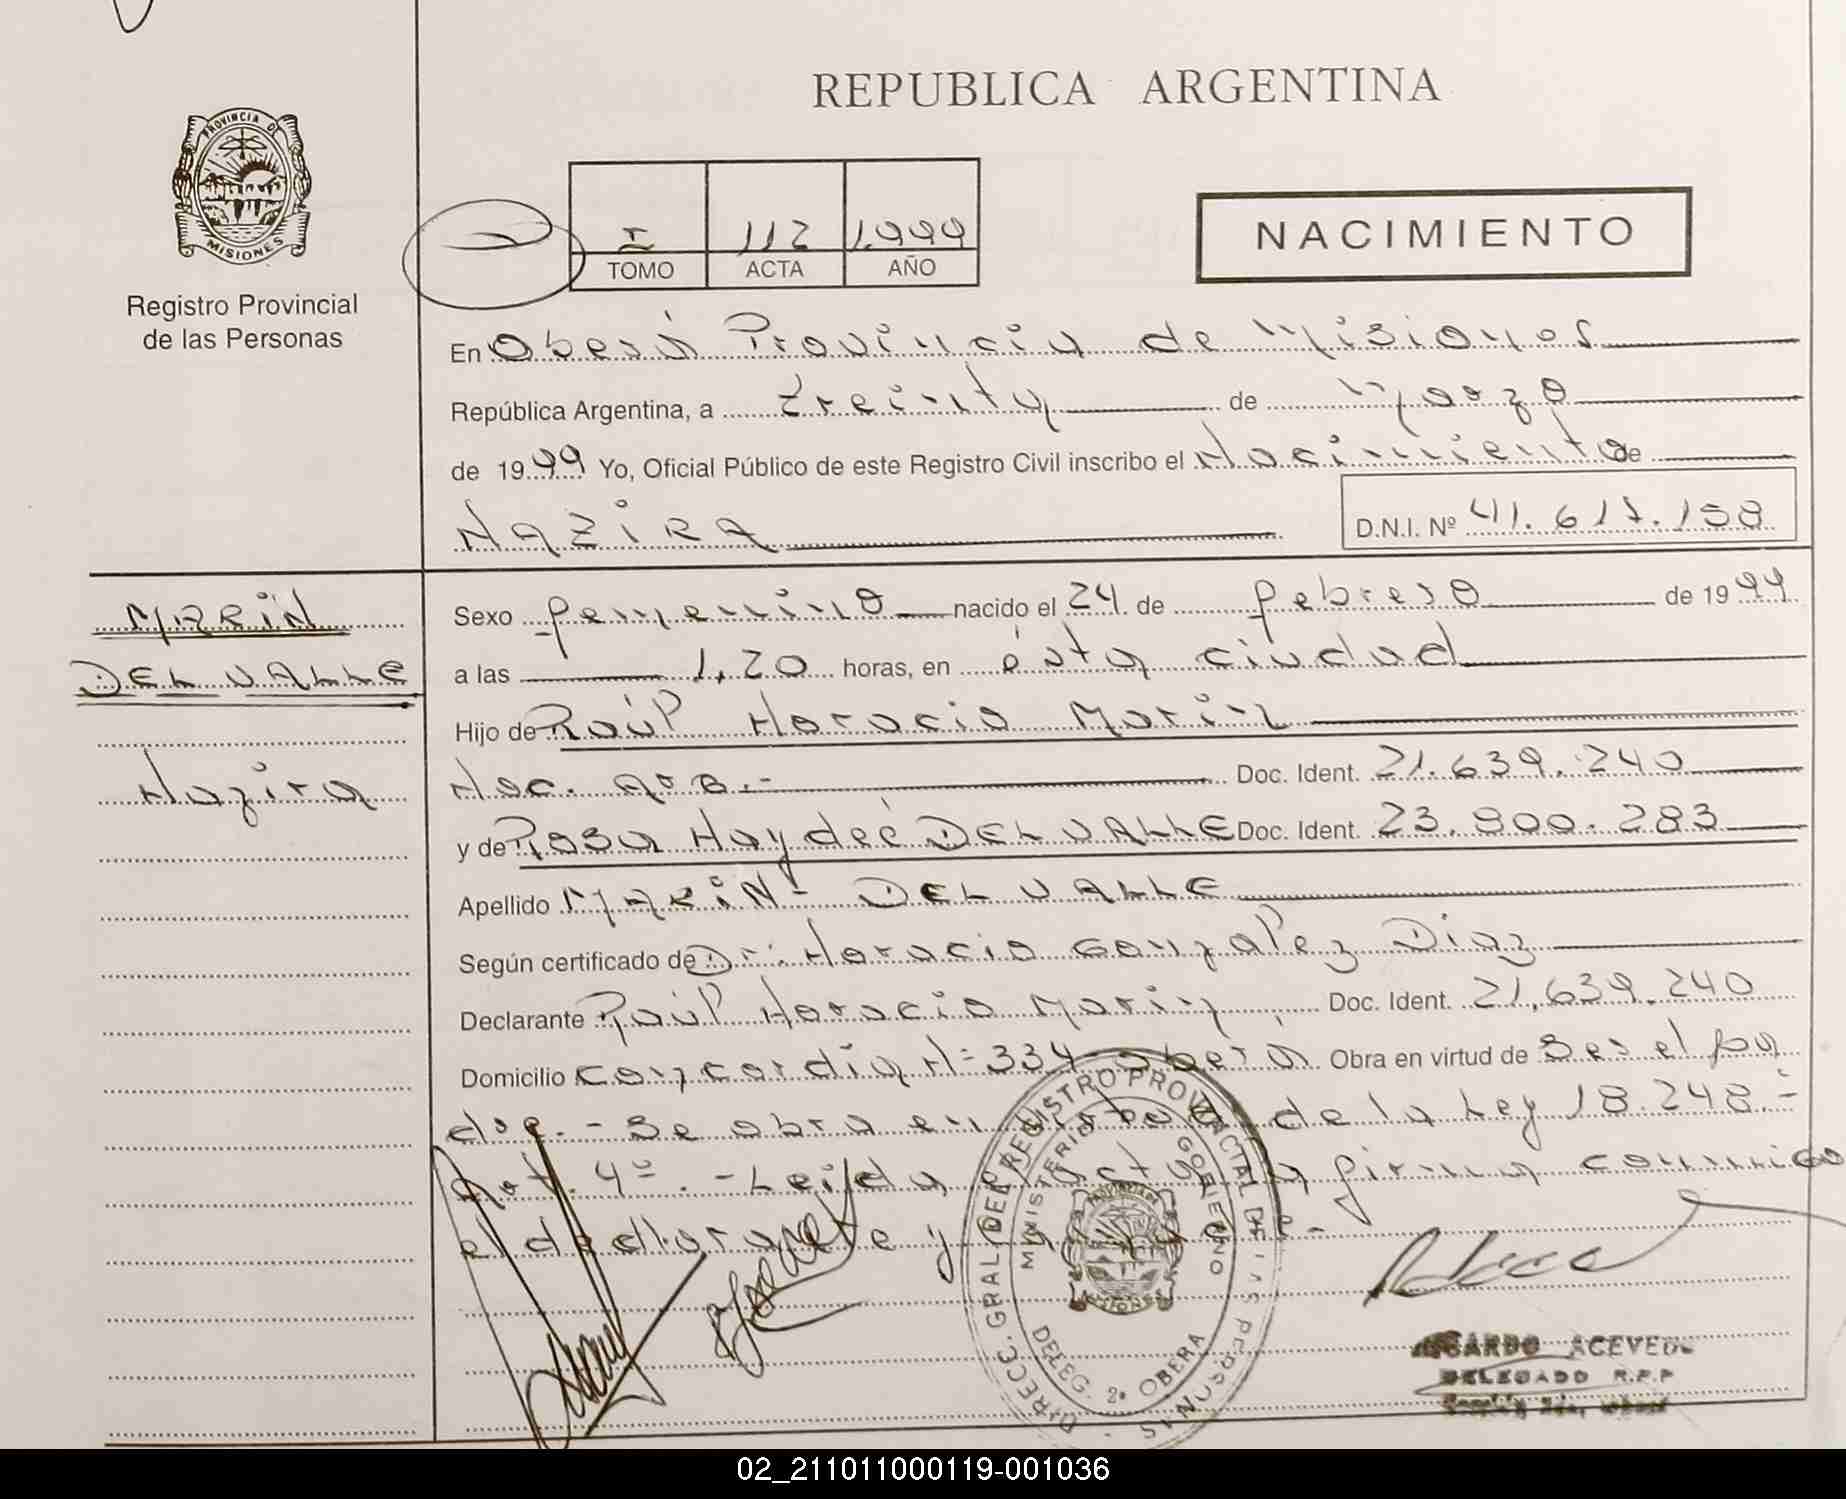 REPUBLICA ARGENTINA
PROVINCIA DE
MISIONES
Registro Provincial
de las Personas
I 112 1.999
TOMO ACTA AÑO
NACIMIENTO
En Oberá Provincia de Misiones
República Argentina, a treinta de Marzo
de 1999 Yo, Oficial Público de este Registro Civil inscribo el Nacimiento de
NAZIRA
D.N.I. Nº 41.617.158
MARIN
DEL VALLE
Nazira
Sexo femenino nacido el 24 de febrero de 1999
a las 1,20 horas, en ésta ciudad
Hijo de Raúl Horacio Marin
Nac. arg.- Doc. Ident. 21.639.240
y de Rosa Haydeé DEL VALLE Doc. Ident. 23.900.283
Apellido MARIN- DEL VALLE
Según certificado de Dr. Horacio Gonzalez Diaz
Declarante Raúl Horacio Marin Doc. Ident. 21.639.240
Domicilio Concordia N= 334 Oberá Obra en virtud de Ser el pa
dre.- Se obra en de la Ley 18.248.-
Art. 4º.- Leída el acta la firma conmigo
el declarante y
DIRECC. GRAL. DEL REGISTRO PROVINCIAL DE LAS PERSONAS
MINISTERIO GOBIERNO
PROVINCIA DE
MISIONES
DELEG. 2ª OBERA
ACEVEDO
DELEGADO R.P.P
02_211011000119-001036